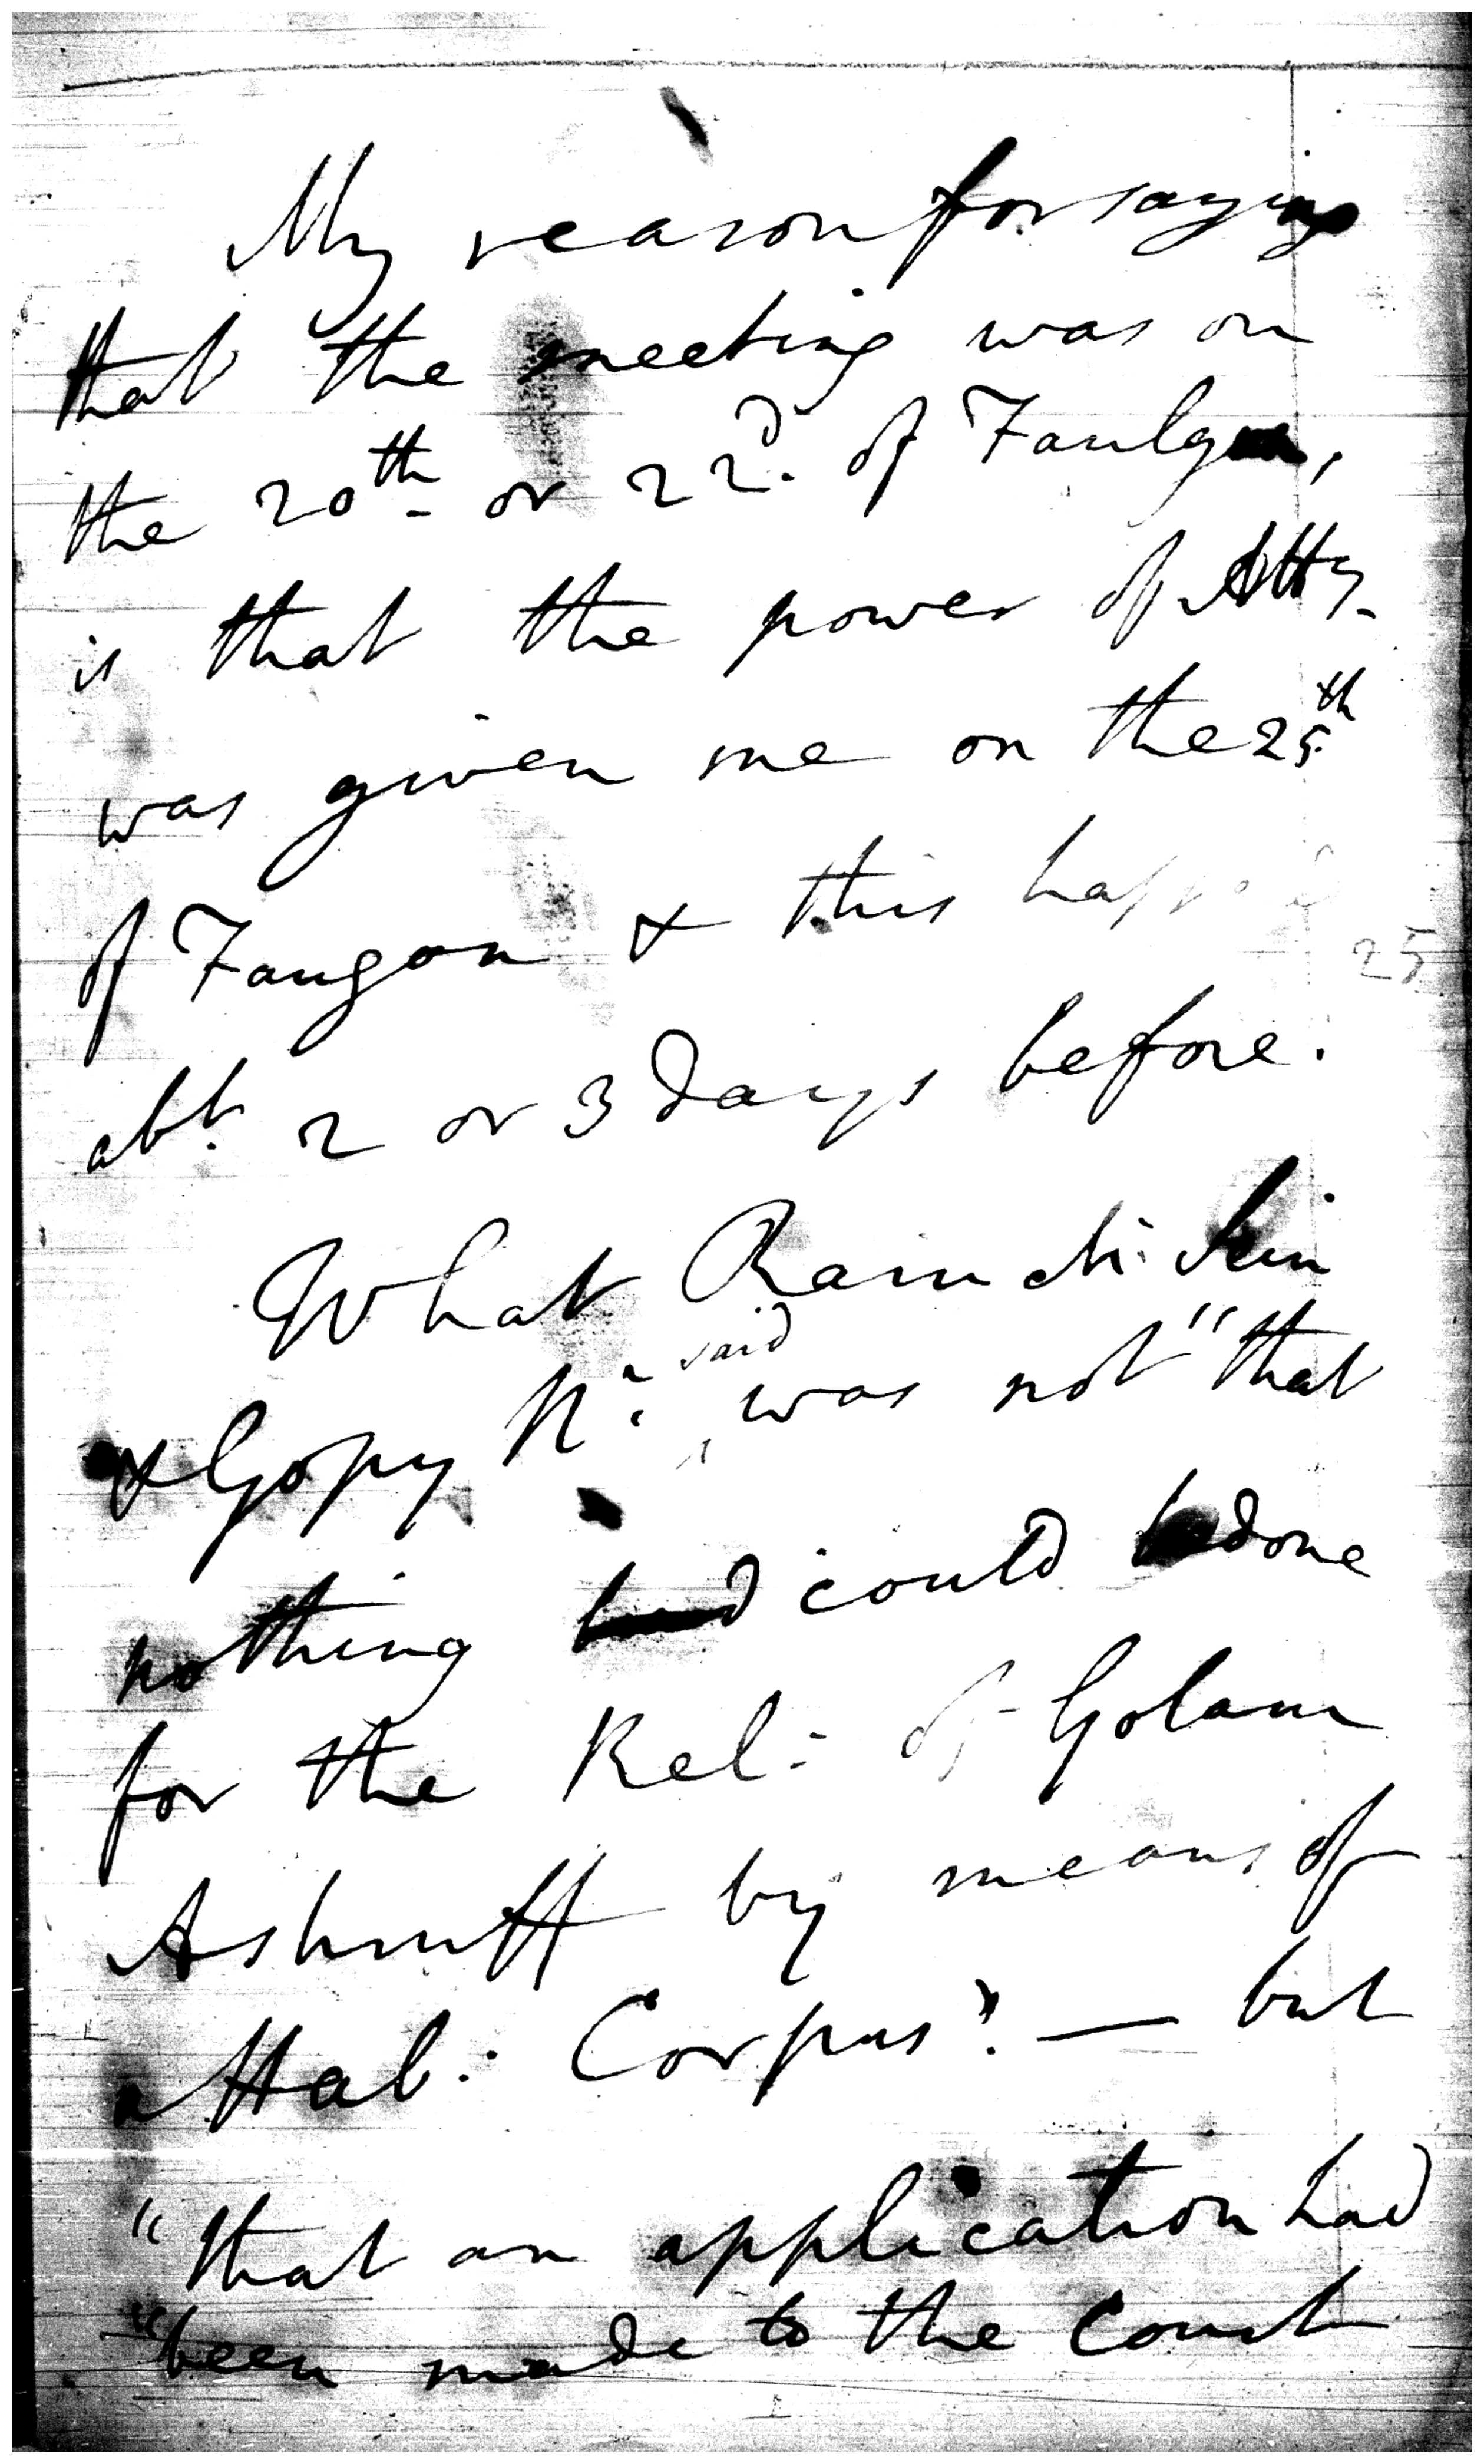 My reason for saying
that the meeting was on
the 20th or 22d. of Faulgun,
is that the power of Atty.
was given me on the 25th
of Faugon & this happ
25
abt. 2 or 3 days before.
What Ram
& Gopy N. said was not "that
nothing had could be done
for the Rel: of Golam
Ashruff by means of
a Hab: Corpus". — but
"that an application had
"been made to the Court